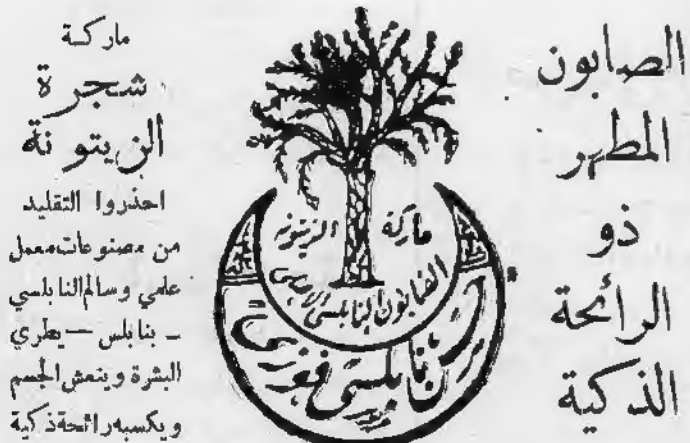 الصابون
المطهر
ذو
الرائحة
الذكية
ماركة الزيتونه
الصابون النابلسي الاصلي
نابلسي فوزي
ماركة
شجرة
الزيتونة
احذروا التقليد
من مصنوعات معمل
علمي وسالم النابلسي
ـ بنابلس — يطري
البشرة وينعش الجسم
ويكسبه رائحة ذكية